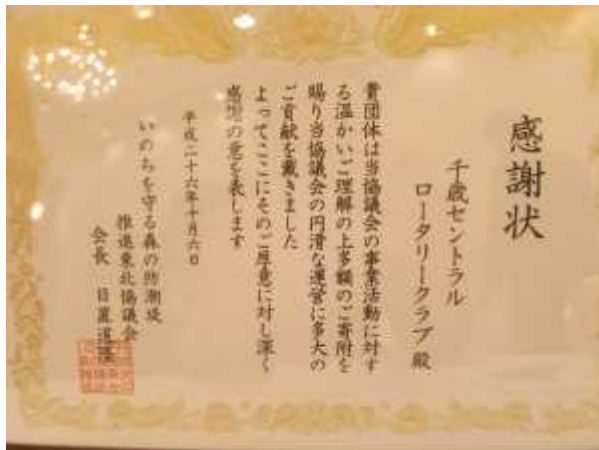 感謝状
千歳セントラル
ロータリークラブ殿
貴団体は当協議会の事業活動に対す
る温かいご理解の上多額のご寄附を
賜り当協議会の円滑な運営に多大の
ご貢献を戴きました
よってここにそのご厚意に対し深く
感謝の意を表します
平成二十六年十月六日
いのちを守る森の防潮堤
推進東北協議会
会長 日置道隆